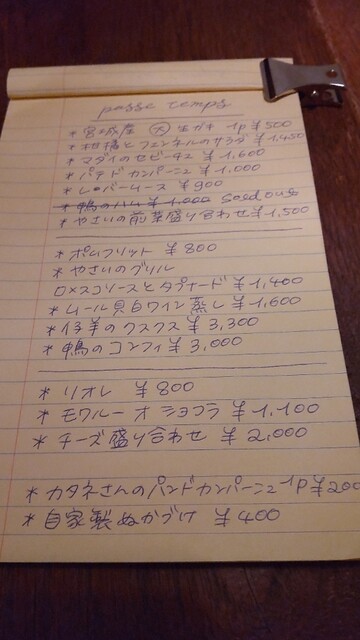 passe temps
* 宮城産 大 生ガキ 1p ¥500
* 柑橘とフェンネルのサラダ ¥1,450
* マダイのセビーチェ ¥1,600
* パテドカンパーニュ ¥1,000
* レバームース ¥900
* 鴨のハム ¥1,000 Soldout
* やさいの前菜盛り合わせ ¥1,500
* ポムフリット ¥800
* やさいのグリル
ロメスコソースとタプナード ¥1,400
* ムール貝白ワイン蒸し ¥1,600
* 仔羊のクスクス ¥3,300
* 鴨のコンフィ ¥3,000
* リオレ ¥800
* モワルーオショコラ ¥1,100
* チーズ盛り合わせ ¥2,000
* カタネさんのパンドカンパーニュ 1p ¥200
* 自家製ぬかづけ ¥400